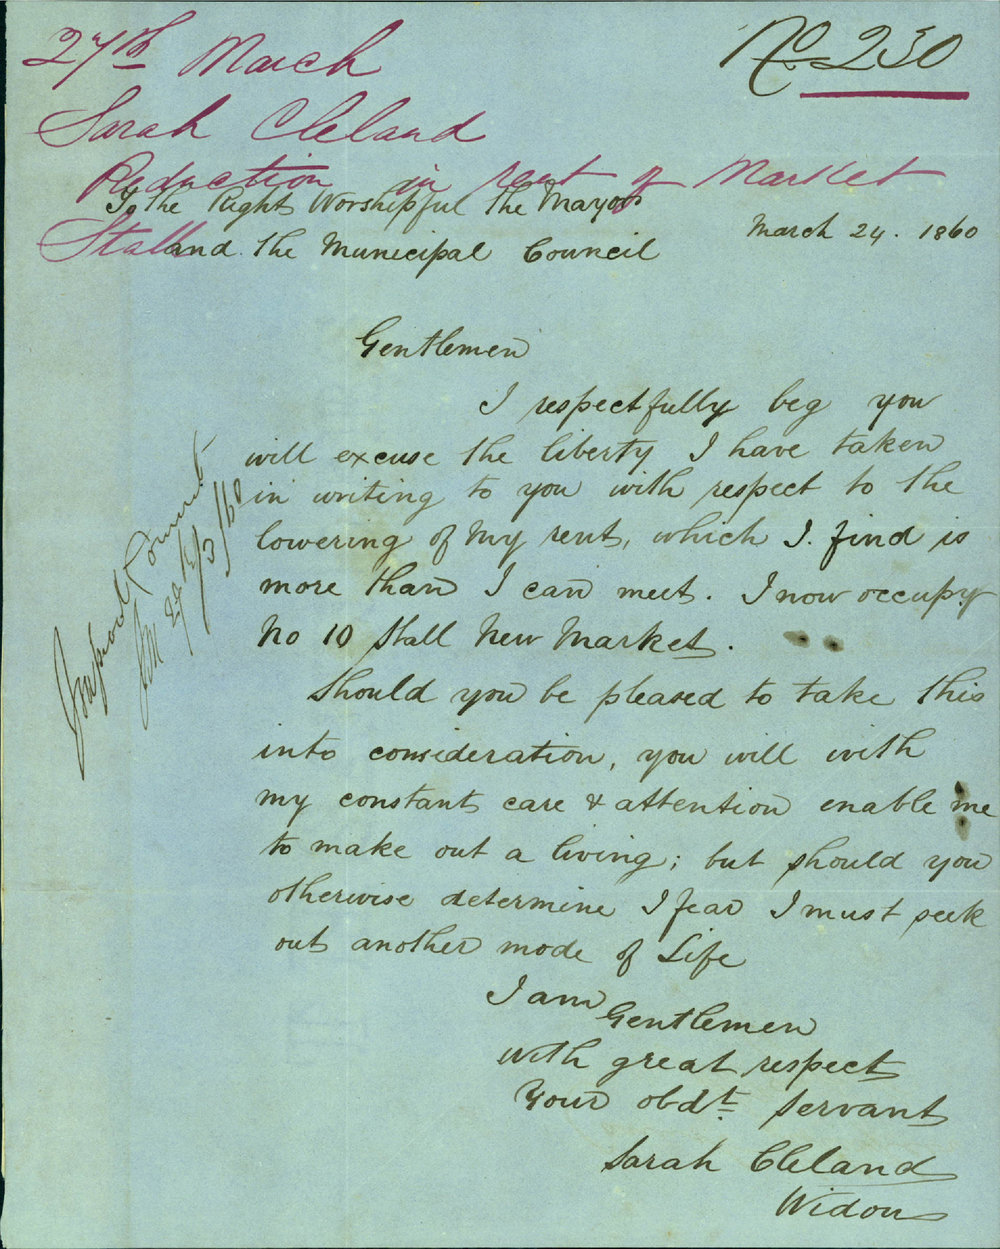 27th March
No. 230
Sarah Cleland
Reduction in rent of Market
Stall
To the Right Worshipful the Mayor
and the Municipal Council
March 24. 1860
Gentlemen
I respectfully beg you
will excuse the liberty I have taken
in writing to you with respect to the
lowering of my rent, which I find is
more than I can meet. I now occupy
No 10 Stall New Market.
Should you be pleased to take this
into consideration, you will with
my constant care & attention enable me
to make out a living; but should you
otherwise determine I fear I must seek
out another mode of Life
I am
Gentlemen
with great respect
Your obdt servant
Sarah Cleland
Widow